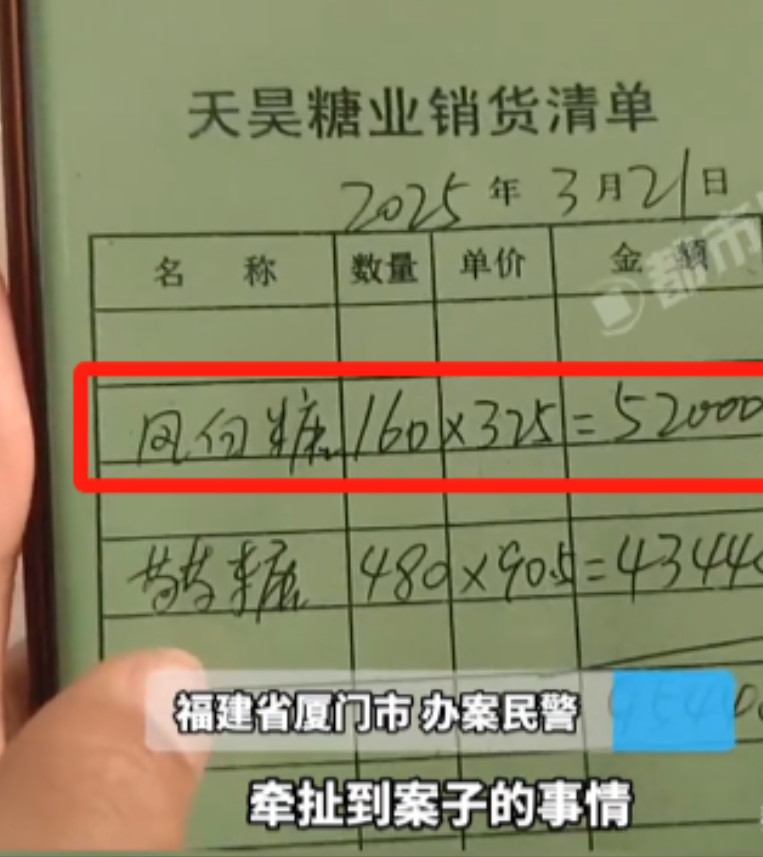 天昊糖业销货清单
2025年3月21日
名称 数量 单价 金额
都市
160 × 325 = 52000
糖 480 × 90.5 = 4344
福建省厦门市 办案民警
牵扯到案子的事情